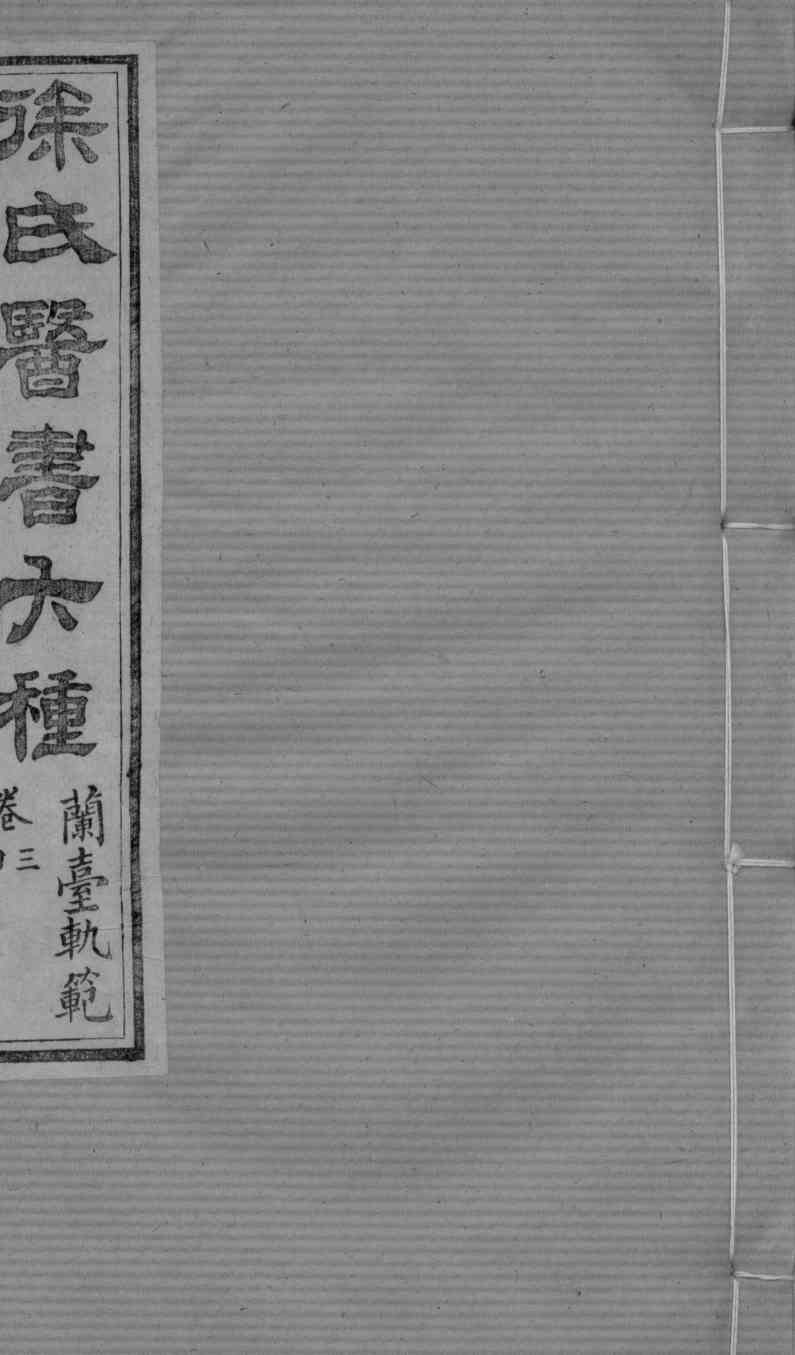 徐氏醫書六種
蘭臺軌範
卷三